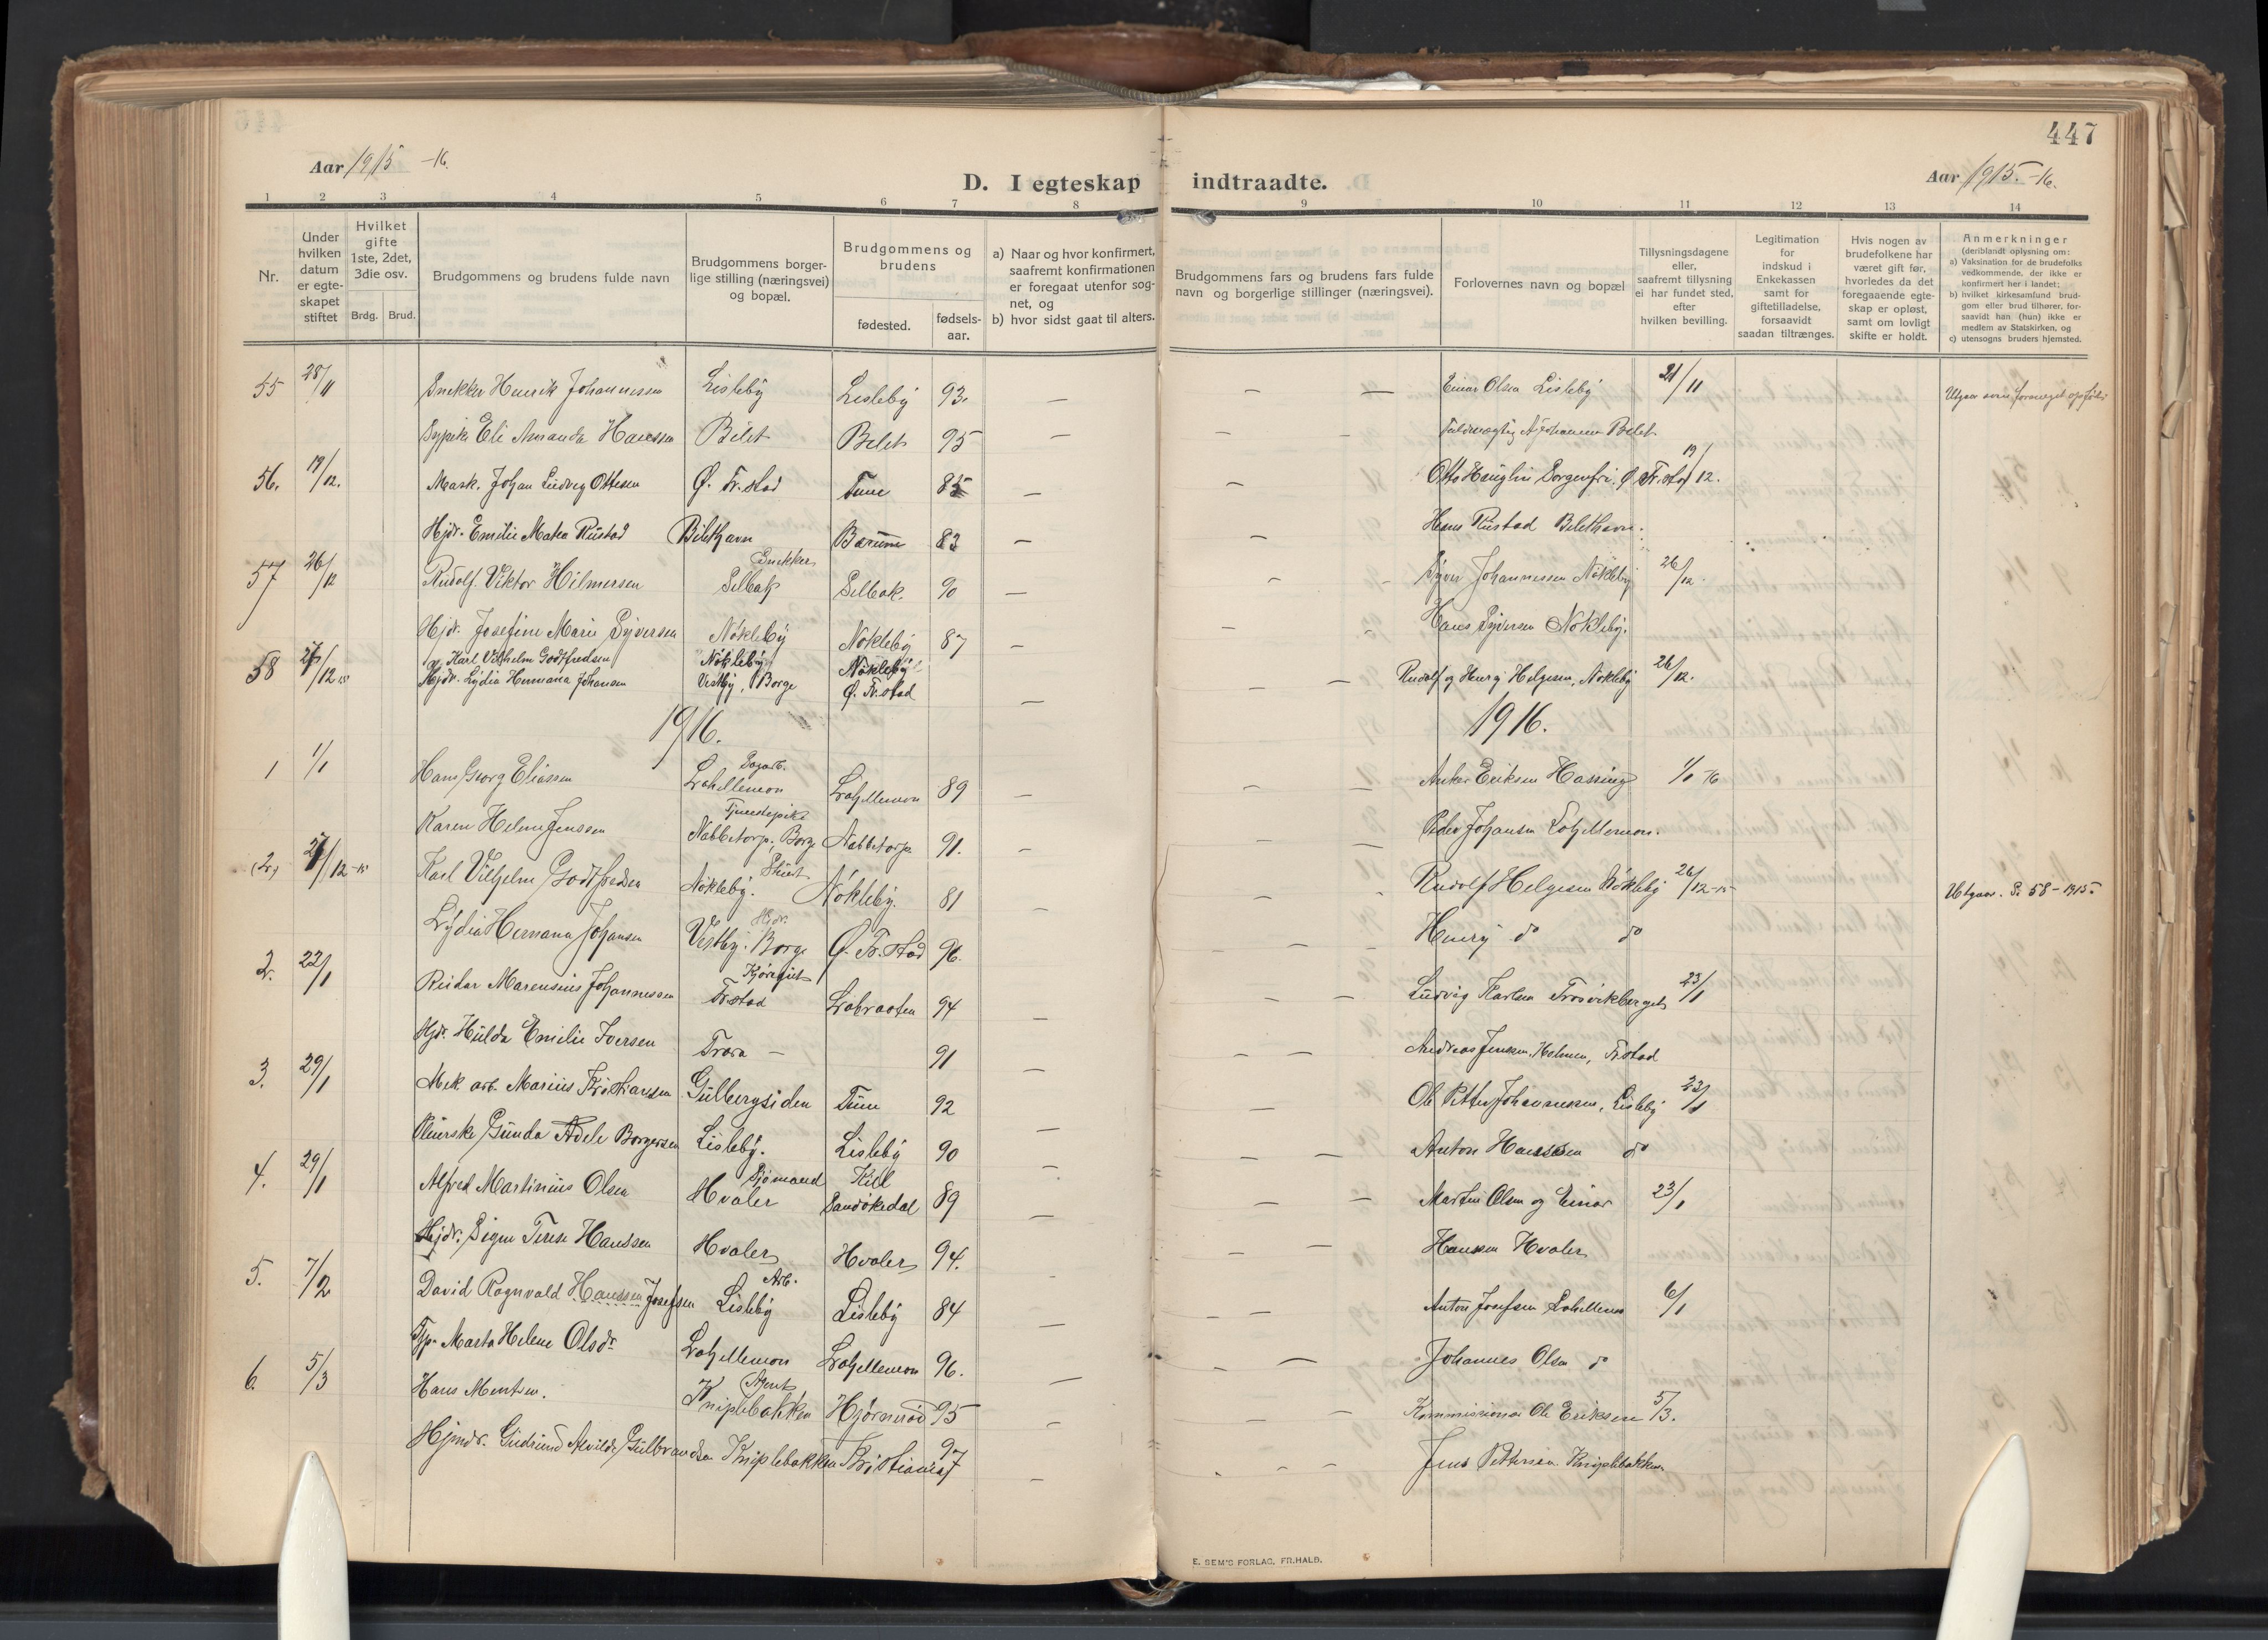 447
Aar 1915 -16.
D. I egteskap indtraadte.
Aar 1915.-16.
1 2 3 4 5 6 7 8 9 10 11 12 13 14
Nr.
Under hvilken datum er egte-skapet stiftet
Hvilket gifte 1ste, 2det, 3die osv.
Brdg. Brud.
Brudgommens og brudens fulde navn
Brudgommens borger-lige stilling (næringsvei) og bopæl.
Brudgommens og brudens
fødested.
fødsels-aar.
a) Naar og hvor konfirmert, saafremt konfirmationen er foregaat utenfor sog-net, og
b) hvor sidst gaat til alters.
Brudgommens fars og brudens fars fulde navn og borgerlige stillinger (næringsvei).
Forlovernes navn og bopæl
Tillysningsdagene eller, saafremt tillysning ei har fundet sted, efter hvilken bevilling.
Legitimation for indskud i Enkekassen samt for giftetilladelse, forsaavidt saadan tiltrænges.
Hvis nogen av brudefolkene har været gift før, hvorledes da det foregaaende egte-skap er opløst, samt om lovligt skifte er holdt.
Anmerkninger
(deriblandt oplysning om:
a) Vaksination for de brudefolks vedkommende, der ikke er konfirmert her i landet;
b) hvilket kirkesamfund brud-gom eller brud tilhører, for-saavidt han (hun) ikke er medlem av Statskirken, og
c) utensogns bruders hjemsted.
55 28/11 Snekker Henrik Johannessen Lisleby Lisleby 93. — — — Einar Olsen Lisleby 21/11 Utgaar som
Eli Amanda Hanssen Bilet Bilet 95 — — — Johannessen Bilet
56. 19/12. Mask. Johan Ludvig Ottesen Ø. Fr.stad Tune 85 — — Otto Hauglin Sorgenfri. Ø. Fr.stad 19/12.
Hjdr. Emilie Matea Rustad Bilethavn Bærum 83 — — Hans Rustad Bilethavn.
57 26/12 Rudolf Viktor Hilmersen Snekker Selbak Selbak. 90 — — Syver Johannessen Nökleby 26/12.
Hjdr. Josefine Marie Syversen Nökleby Nökleby 87 — — Hans Syversen Nökleby.
58 /12 15 Karl Vilhelm Godtfredsen Nökleby Nökleby
Hjdr. Lydia Hermana Johansen Vestby, Borge Ø. Fr.stad — — — Rudolf og Henry Helgesen, Nökleby 26/12.
1916. 1916.
1 1/1 Hans Georg Eliassen Dagarb. Lahellemoen Lahellemoen 89 — — — Anker Eriksen Hassing 1/1 16
Karen Helene Jenssen Tjenestepike Nabbetorp, Borge Nabbetorp 91. — — Peder Johansen Lahellemoen.
(2.) /12-15 Karl Vilhelm Godtfredsen Nökleby. Nökleby. 81 — — Rudolf Helgesen Nökleby 26/12-15 Utgaar. S. 58-1915.
Lydia Hermana Johansen Hjdr. Vestby. Borge Ø. Fr.stad 96. — — — Henry do do
2. 22/1 Reidar Marensius Johannessen Kjöregut Fr.stad Labraaten 94 — — — Ludvig Karlsen Trosvikberget 23/1
Hjdr. Hulda Emilie Iversen Trara — 91 — — — Andreas Jenssen, Holmen, Fr.stad
3. 29/1 Mek arb. Marius Kristiansen Gulbergsiden Tune 92 — — Ole Petter Johannessen, Lisleby 23/1
Gunda Adele Borgersen Lisleby. Lisleby 90 — — — Anton Hanssen do
4. 29/1 Alfred Martinius Olsen Sjömand Hvaler Kiil Sandökedal 89 — — — Martin Olsen og Einar 23/1
Hjdr. Signe Terese Hanssen Hvaler Hvaler 94. — — Hanssen Hvaler
5. 7/2 David Ragnvald Hanssen Josefsen Arb. Lisleby Lisleby 84 — — — Anton Josefsen Lahellemoen 6/1
Tjp. Marta Helene Olsdr Lahellemoen Lahellemoen 96. — — — Johannes Olsen do
6. 5/3 Hans Agent Kniplebakken Hjörneröd 95 — — — Kommissionær Ole Eriksen 5/3.
Hjmdr. Gudrund Alvilde Gulbrandsen Kniplebakken Kristiania 97 — — — Jens Pettersen Kniplebakken
E. SEM'S FORLAG, FR.HALD.